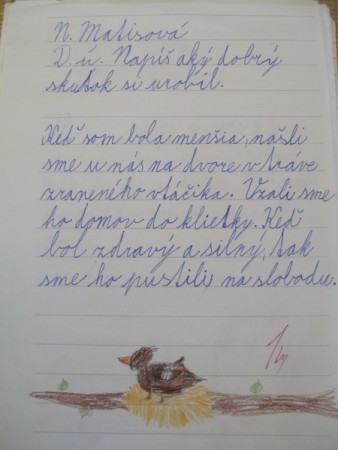 N. Matisová
D. ú. Napíš aký dobrý
skutok si urobil.
Keď som bola menšia, našli
sme u nás na dvore v tráve
zraneného vtáčika. Vzali sme
ho domov do klietky. Keď
bol zdravý a silný, tak
sme ho pustili na slobodu.
1